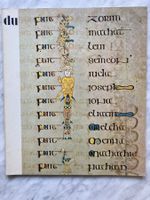 du
fuit zorim
fuit mathat
fuit leui
fuit semeon
fuit iuda
fuit ioseph
fuit
fuit
fuit melcha
fuit menna
fuit
fuit nathan